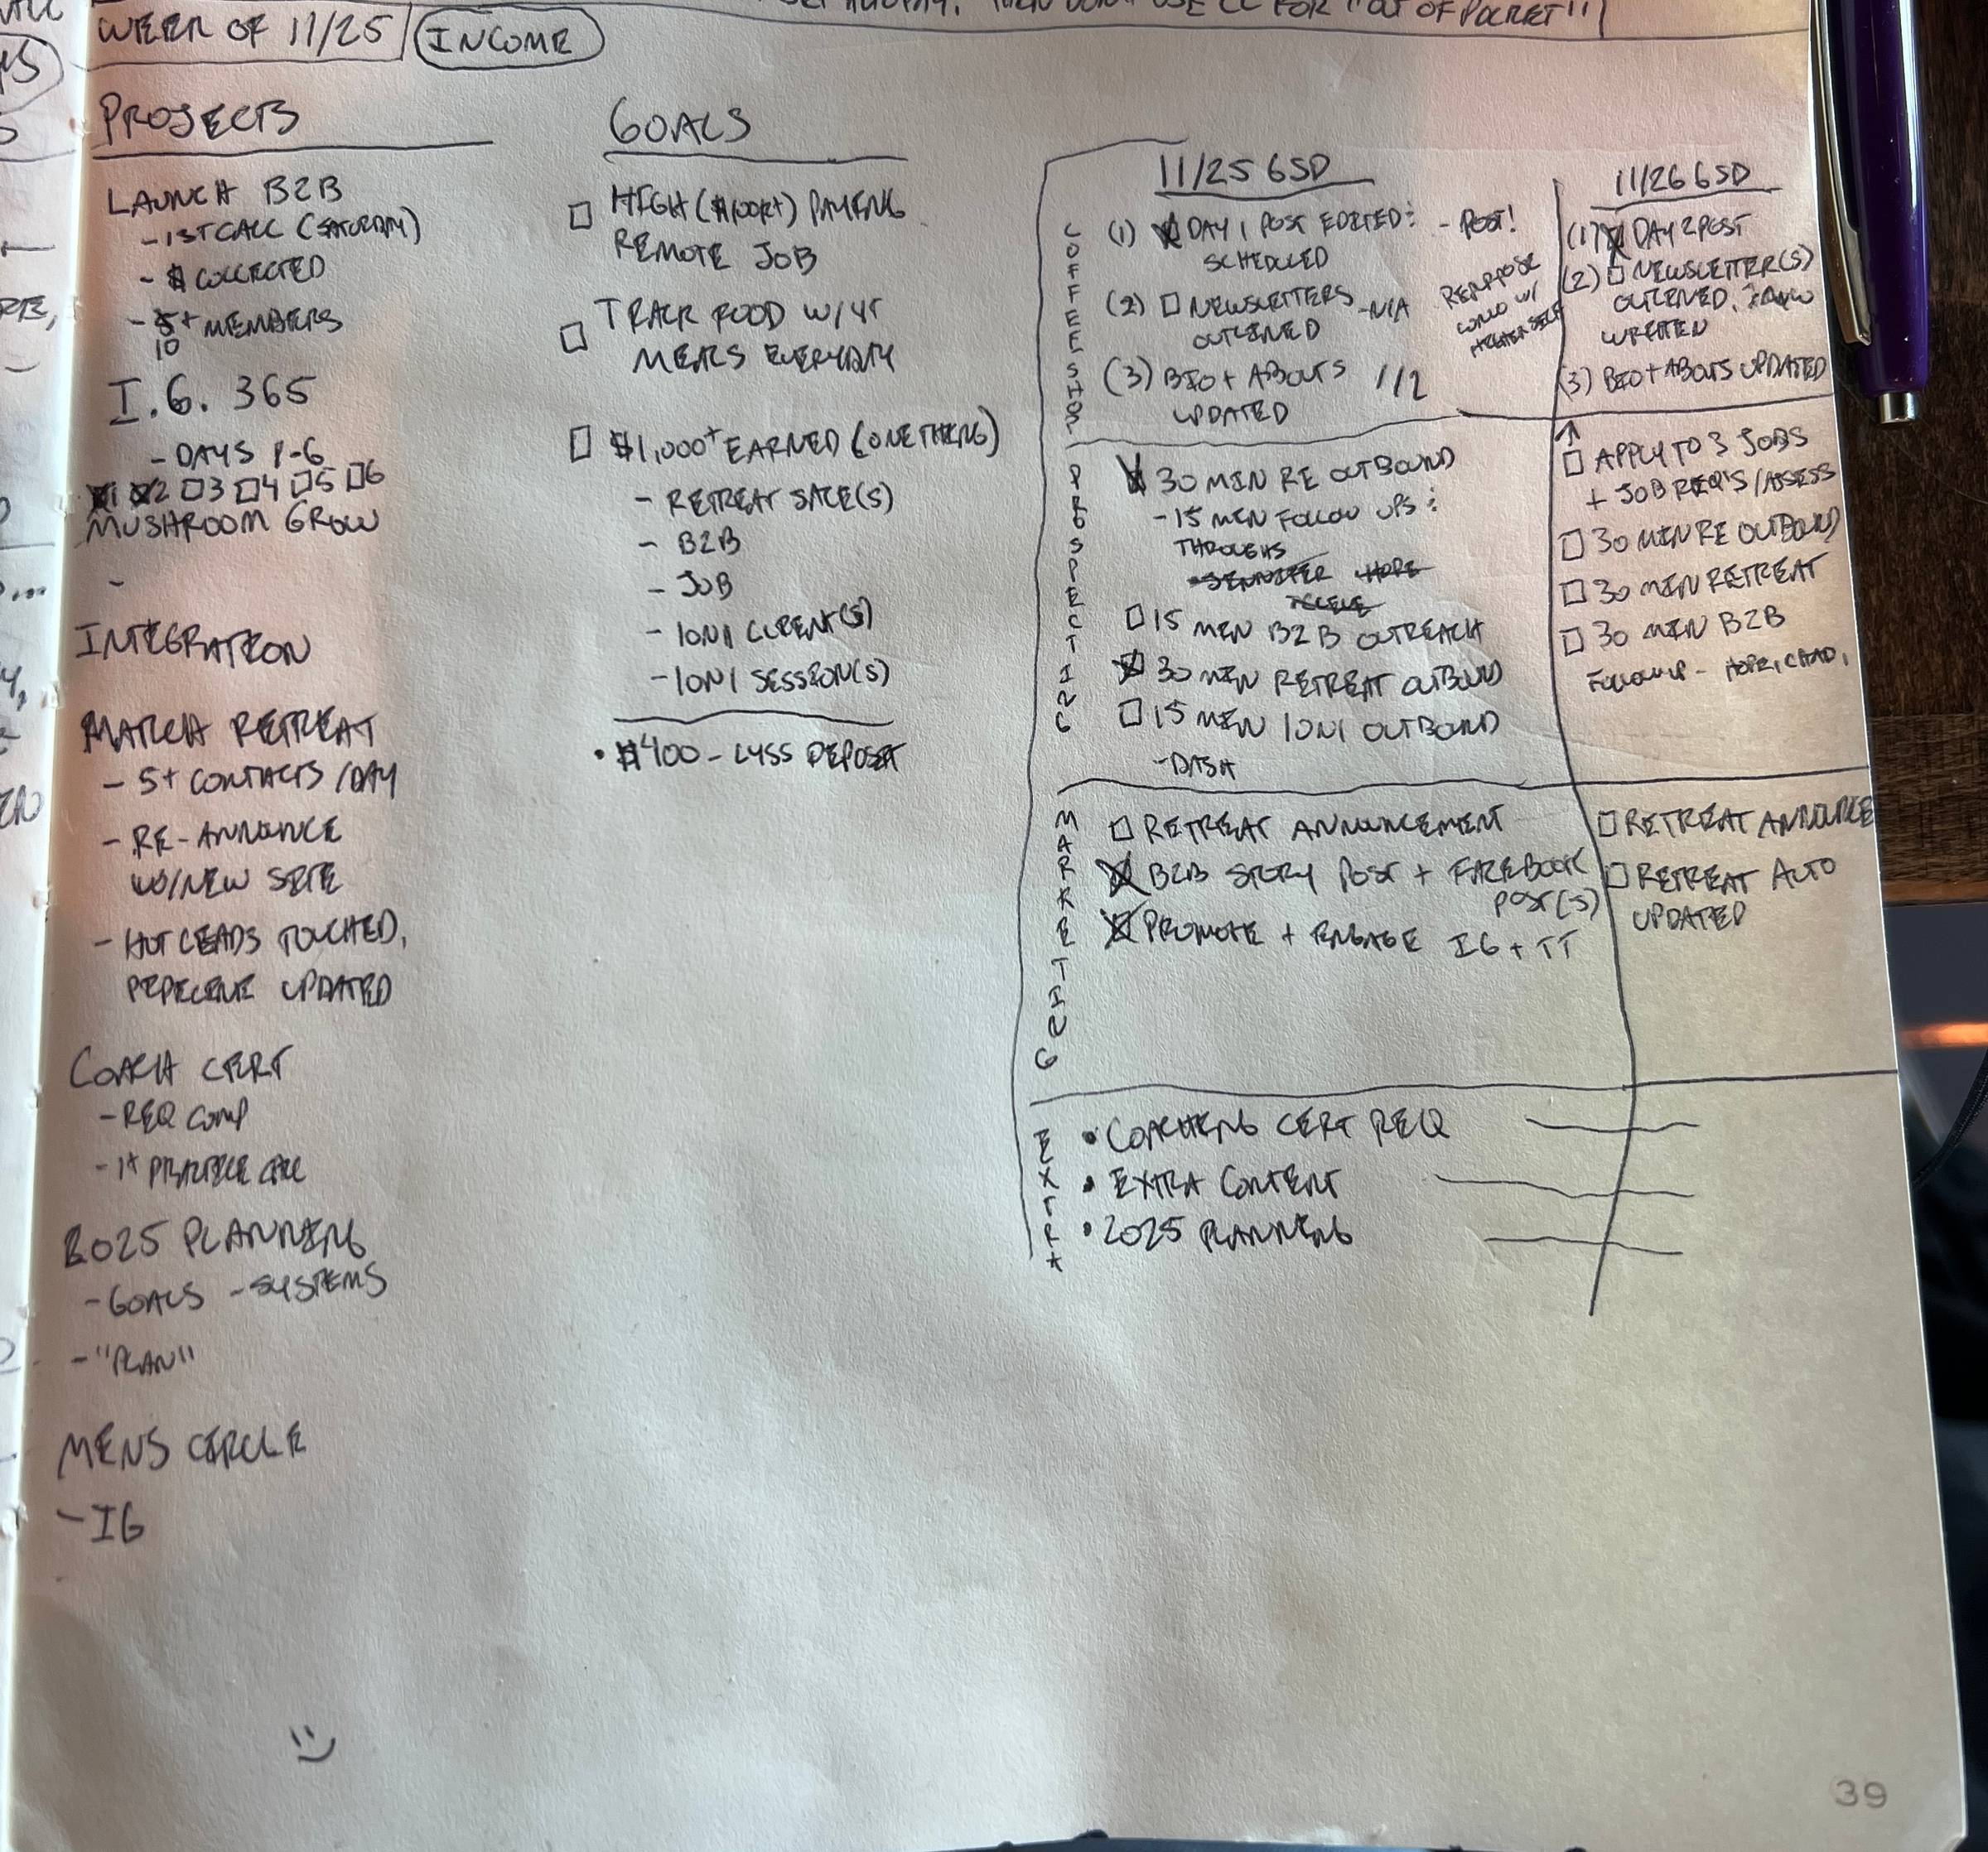 WEEK OF 11/25
INCOME
PROJECTS
LAUNCH B2B
- 1ST CALL (SATURDAY)
- $ COLLECTED
- 5+ MEMBERS
10
I.G. 365
- DAYS 1-6
1 2 3 4 5 6
MUSHROOM GROW
-
INTEGRATION
MARCH RETREAT
- 5+ CONTACTS/DAY
- RE-ANNOUNCE
W/NEW SITE
- HOT LEADS TOUCHED,
PIPELINE UPDATED
COACH CERT
- REQ COMP
- 1+ PRACTICE CALL
2025 PLANNING
- GOALS - SYSTEMS
- "PLAN"
MENS CIRCLE
- IG
GOALS
HIGH ($100K+) PAYING
REMOTE JOB
TRACK FOOD W/ 4+
MEALS EVERYDAY
$1,000+ EARNED (ONE THING)
- RETREAT SALE(S)
- B2B
- JOB
- 1ON1 CLIENT(S)
- 1ON1 SESSION(S)
• $400 - LYSS DEPOSIT
11/25 GSD
COFFEE SHOP
(1) DAY 1 POST EDITED + - POST!
SCHEDULED
(2) NEWSLETTERS - N/A
OUTLINED
REPURPOSE
CONVO W/
HIGHER SELF
(3) BIO + ABOUTS 1/2
UPDATED
PROSPECTING
30 MIN RE OUTBOUND
- 15 MIN FOLLOW UPS +
THROUGHS
- JENNIFER - HOPE
15 MIN B2B OUTREACH
30 MIN RETREAT OUTBOUND
15 MIN 1ON1 OUTBOUND
- DISH
MARKETING
RETREAT ANNOUNCEMENT
B2B STORY POST + FACEBOOK
POST(S)
PROMOTE + ENGAGE IG + TT
EXTRA
• COACHING CERT REQ
• EXTRA CONTENT
• 2025 PLANNING
11/26 GSD
(1) DAY 2 POST
(2) NEWSLETTER(S)
OUTLINED,
WRITTEN
(3) BIO + ABOUTS UPDATED
APPLY TO 3 JOBS
+ JOB REQ'S/ASSESS
30 MIN RE OUTBOUND
30 MIN RETREAT
30 MIN B2B
FOLLOWUP - HOPE, CHAD,
RETREAT ANNOUNCE
RETREAT AUTO
UPDATED
39